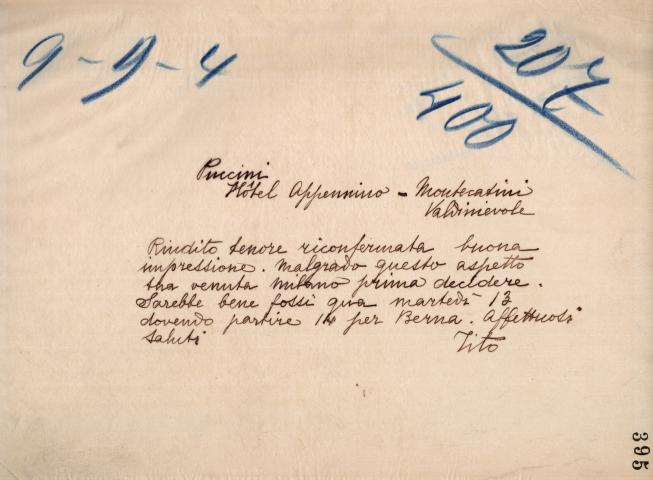 9-9-4
207
400
Puccini
Hôtel Appennino - Montecatini
Valdinievole
Riudito tenore riconfermata buona
impressione. Malgrado questo aspetto
tua venuta Milano prima decidere.
Sarebbe bene fossi qua martedì 13
dovendo partire 14 per Berna. Affettuosi
saluti
Tito
395